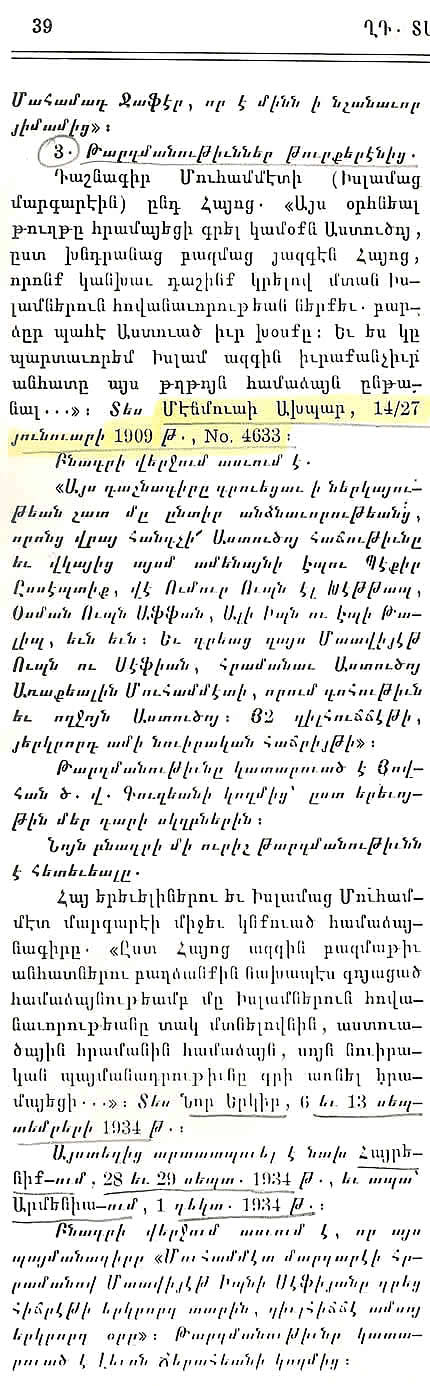 39 ՂԴ. ՏԱ
Մահամադ Ջաֆէր, որ է մինն ի նշանաւոր
յիմամից»։
3. Թարգմանութիւններ թուրքերէնից.
Դաշնագիր Մուհամմէտի (Իսլամաց
մարգարէին) ընդ Հայոց. «Այս օրհնեալ
թուղթը հրամայեցի գրել կամօքն Աստուծոյ,
ըստ խնդրանաց բազմաց յազգէն Հայոց,
որոնք կանխաւ դաշինք կռելով մտան Իս-
լամներուն հովանաւորութեան ներքեւ. բար-
ձըր պահէ Աստուած իւր խօսքը։ Եւ ես կը
պարտաւորեմ Իսլամ ազգին իւրաքանչիւր
անհատը այս թղթոյն համաձայն ընթա-
նալ...»։ Տես Մէճմուաի Ախպար, 14/27
յունուարի 1909 թ., No. 4633։
Բնագրի վերջում ասւում է.
«Այս դաշնագիրը գրուեցաւ ի ներկայու-
թեան շատ մը ընտիր անձնաւորութեանց,
որոնց վրայ հանգչի՜ Աստուծոյ հաճութիւնը
եւ վկայից այսմ ամենայնի էպու Պէքիր
Ըսսէպտիք, վէ Ումուր Ուպն էլ Խէթթապ,
Օսման Ուպն Աֆֆան, Ալի Իպն ու էպի Թա-
լիպ, եւն եւն։ Եւ գրեաց զայս Մաավիյէթ
Ուպն ու Սէֆիան, հրամանաւ Աստուծոյ
Առաքեալին Մուհամմէտի, որում գոհութիւն
եւ ողջոյն Աստուծոյ։ Յ2 զիլհուճճէթի,
յերկրորդ ամի նուիրական հաճրիյթի»։
Թարգմանութիւնը կատարուած է Յով-
հան ծ. վ. Գուղեանի կողմից՝ ըստ երեւոյ-
թին մեր դարի սկզբներին։
Նոյն բնագրի մի ուրիշ թարգմանութիւնն
է հետեւեալը.
Հայ երեւելիներու եւ Իսլամաց Մուհամ-
մէտ մարգարէի միջեւ կնքուած համաձայ-
նագիրը. «Ըստ Հայոց ազգին բազմաթիւ
անհատներու բաղձանքին նախապէս գոյացած
համաձայնութեամբ մը Իսլամներուն հովա-
նաւորութեանը տակ մտնելովնին, աստուա-
ծային հրամանին համաձայն, սոյն նուիրա-
կան պայմանադրութիւնը գրի առնել հրա-
մայեցի...»։ Տես Նոր Երկիր, 6 եւ 13 սեպ-
տեմբերի 1934 թ.։
Այստեղից արտատպուել է նախ Հայրե-
նիք-ում, 28 եւ 29 սեպտ. 1934 թ., եւ ապա՝
Արմենիա-ում, 1 դեկտ. 1934 թ.։
Բնագրի վերջում ասւում է, որ այս
պայմանագիրը «Մուհամմէտ մարգարէի հը-
րամանով Մաավիյէթ Իպնի Սէֆիյանը գրեց
հիճրէթի երկրորդ տարին, զիւլհիճճէ ամսոյ
երկրորդ օրը»։ Թարգմանութիւնը կատա-
րուած է Լեւոն Ճերահեանի կողմից։